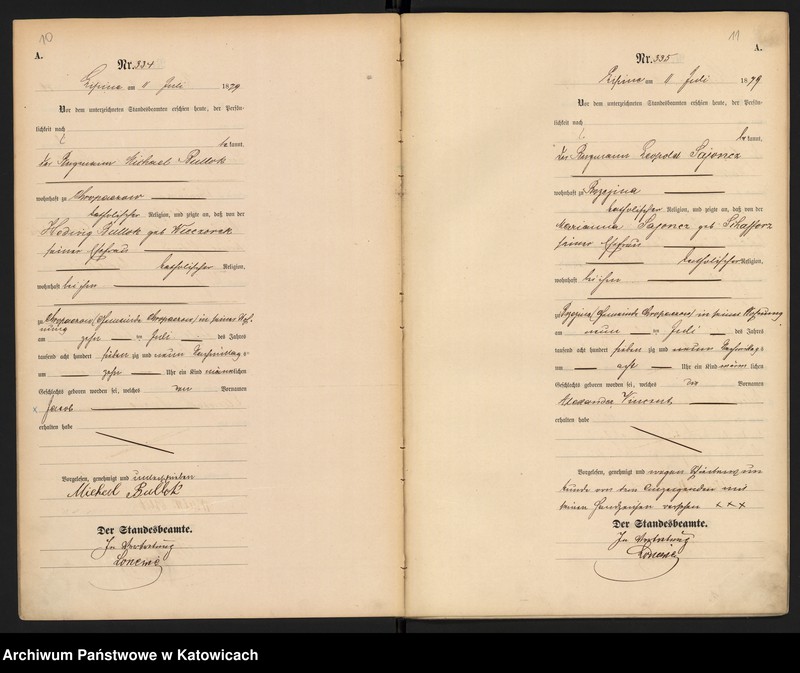 10
A.
Nr. 334
Lipine am 11 Juli 1879
Vor dem unterzeichneten Standesbeamten erschien heute, der Persön-
lichkeit nach
bekannt,
der Bergmann Michael Bullok
wohnhaft zu Chropaczow
katholischer Religion, und zeigte an, daß von der
Hedwig Bullok geb Wieczorek
seiner Ehefrau
katholischer Religion,
wohnhaft bei ihm
zu Chropaczow (Gemeinde Chropaczow) in seiner Woh-
nung
am zehn ten Juli des Jahres
tausend acht hundert sieben zig und neun Nachmittags
um zehn Uhr ein Kind männlichen
Geschlechts geboren worden sei, welches den Vornamen
Jacob
erhalten habe
Vorgelesen, genehmigt und unterschrieben
Michael Bullok
Der Standesbeamte.
In Vertretung
11
A.
Nr. 335
Lipine am 11 Juli 1879
Vor dem unterzeichneten Standesbeamten erschien heute, der Persön-
lichkeit nach
bekannt,
der Bergmann Leopold Sajoncz
wohnhaft zu
katholischer Religion, und zeigte an, daß von der
Marianna Sajoncz geb
seiner Ehefrau
katholischer Religion,
wohnhaft bei ihm
zu (Gemeinde Chropaczow) in seiner Wohnung
am neun ten Juli des Jahres
tausend acht hundert sieben zig und neun Nachmittags
um acht Uhr ein Kind männlichen
Geschlechts geboren worden sei, welches die Vornamen
Alexander, Vincent
erhalten habe
Vorgelesen, genehmigt und wegen Schreibens un
kunde von dem Anzeigenden mit
seinen Handzeichen versehen xxx
Der Standesbeamte.
In Vertretung
Archiwum Państwowe w Katowicach